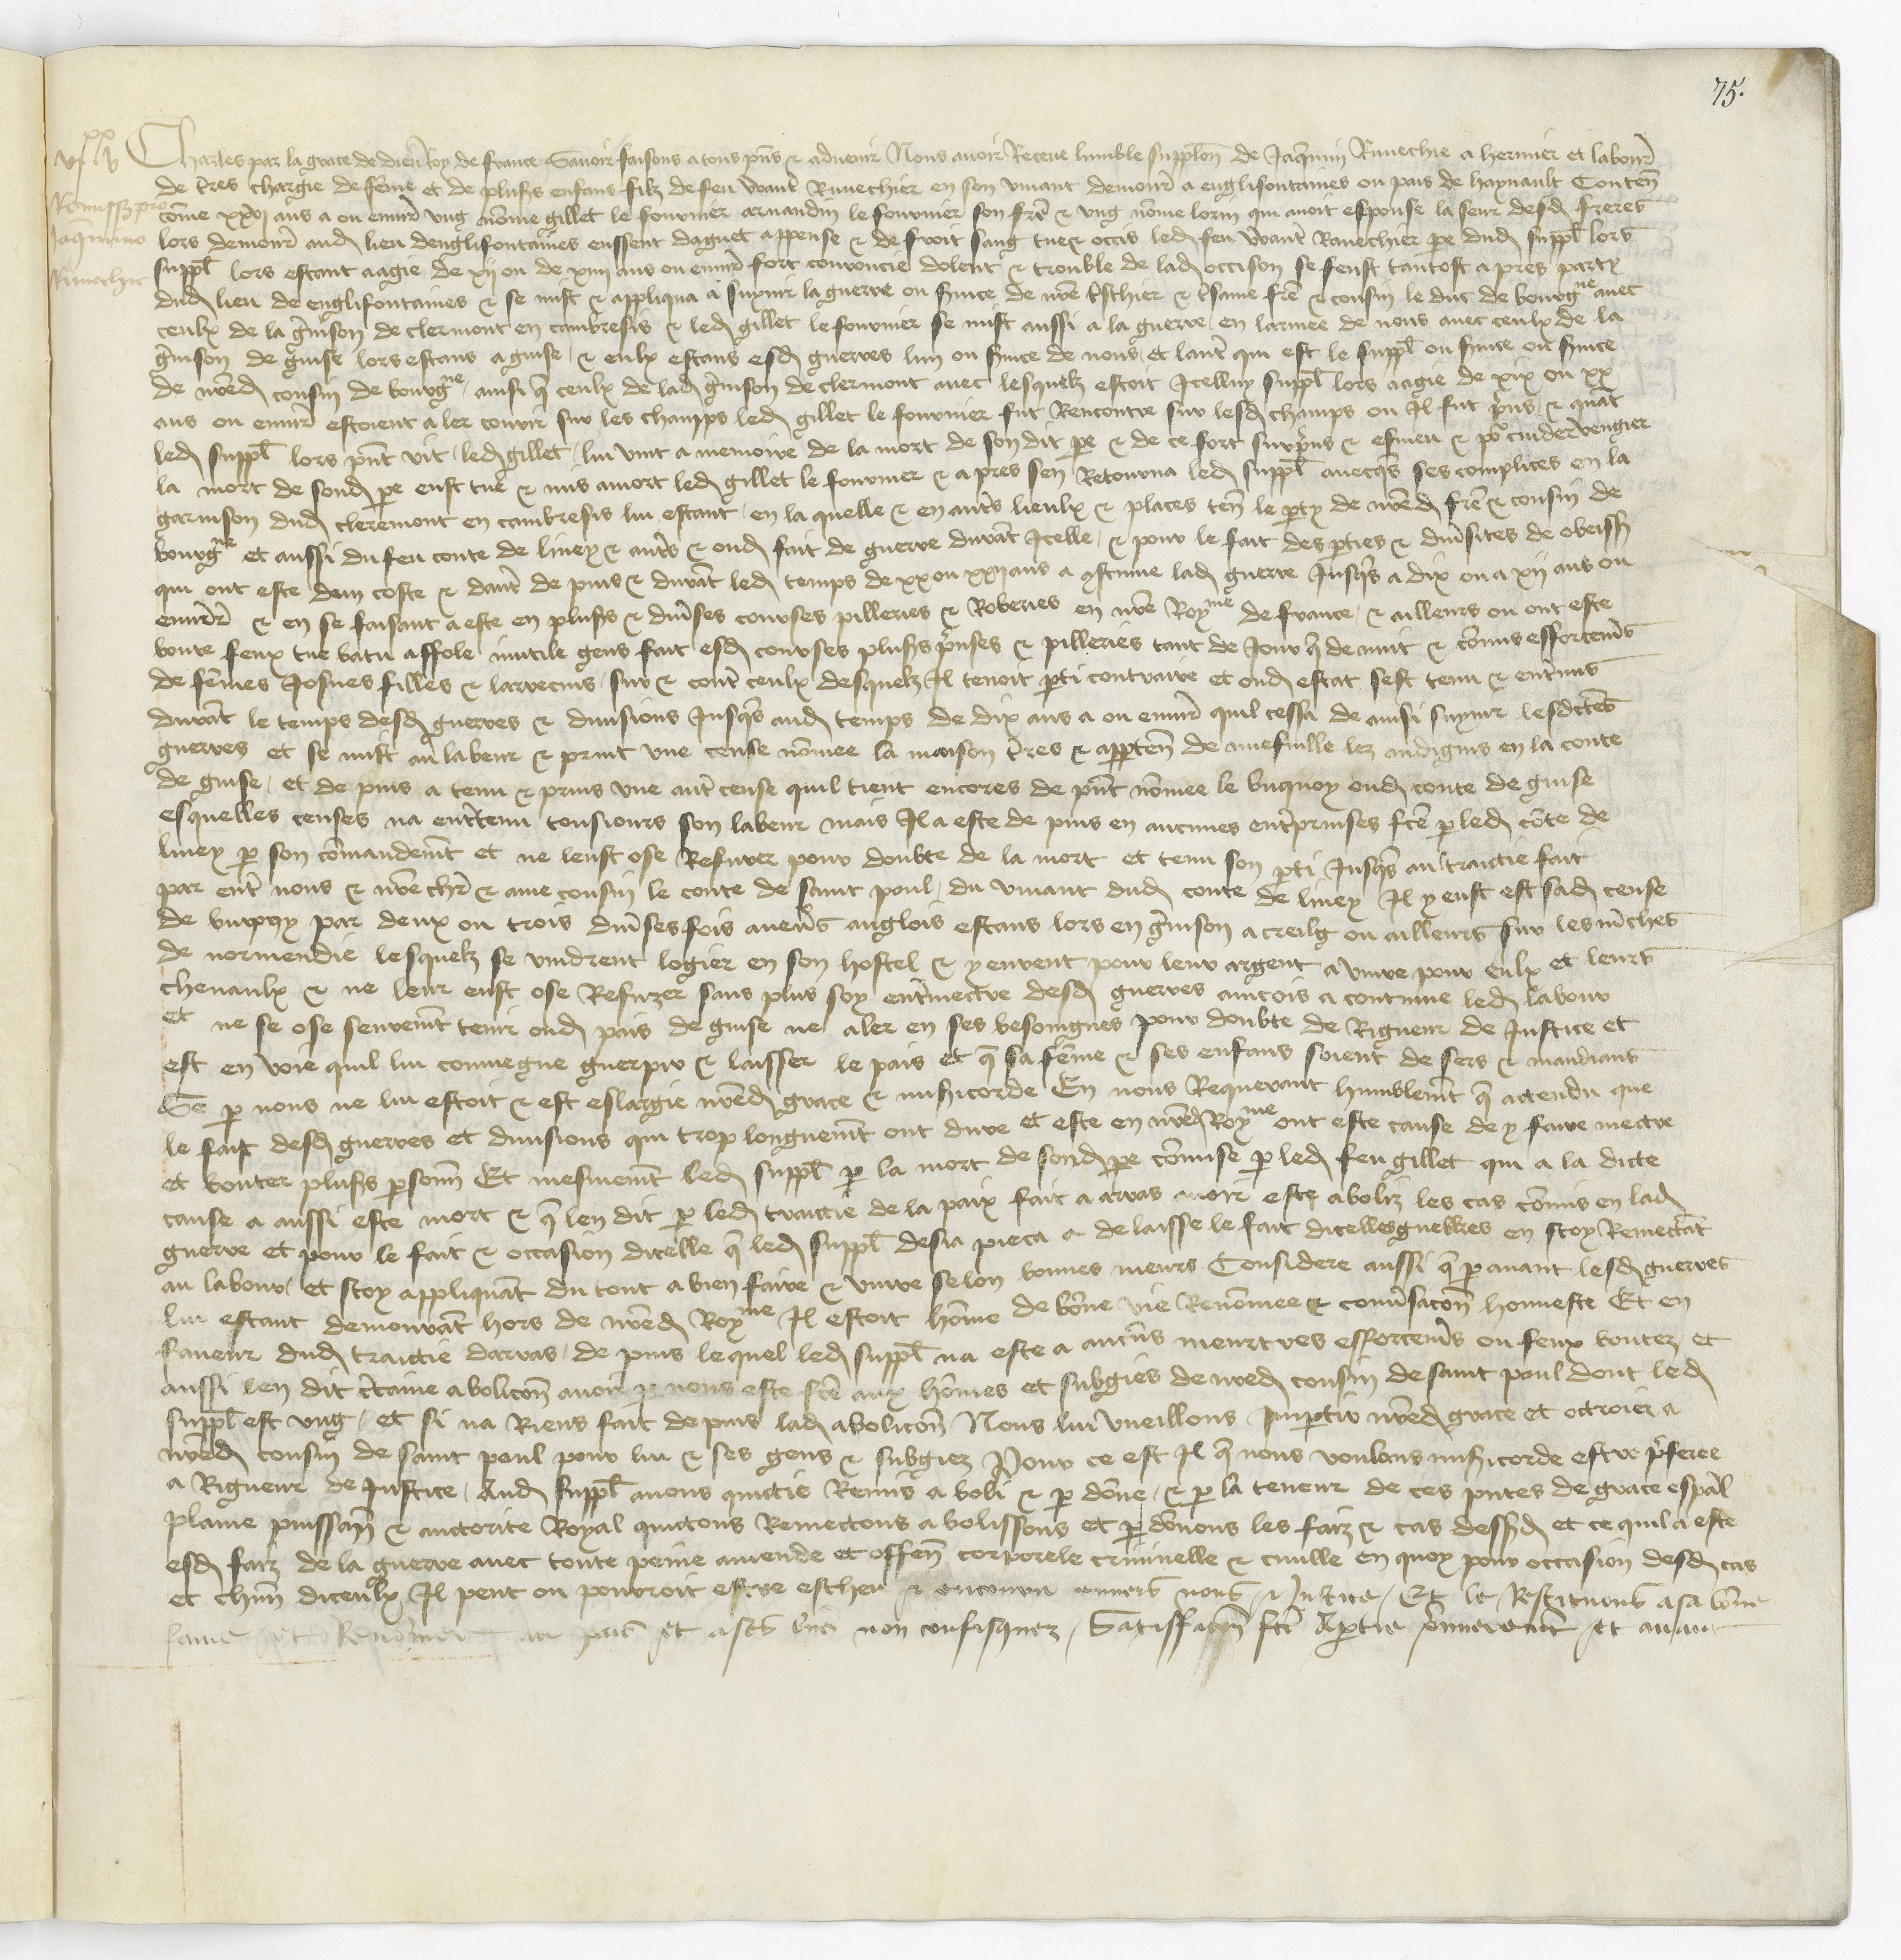 75.
Charles par la grace de dieu Roy de france Sauoir faisons a tous pns & aduenir Nous auoir Receue lumble supplon de Jaqmin Rinechie a hermier et labour
vixx v
de tres chargie de feme et de plus enfans filz de feu want Rinechier en son viuant demour a englifontaines ou pais de haynault Conten
Remissio pro
Jaqmino
Rinechie
come xxvi ans a ou enuir vng nome gillet le fournier arnaudin le fournier son fre & vng nome lorin qui auoit espouse la seur desd freres
lors demour aud lieu denglifontaines eussent daguet appense & de froit sang tue & occis led feu want Rinechier pe dud suppl lors
suppl lors estant aagie de xij ou de xiiii ans ou enuir fort courroucie dolent & trouble de lad occision se feust tantost apres party
dud lieu de englifontaines & se mist & appliqua a suyuir la guerre ou suice de nre tschier & tsame fre & cousin le duc de bourgne auec
ceulx de la gnison de clermont en cambresis & led gillet le fournier se mist aussi a la guerre en larmee de nous auec ceulx de la
gnison de guise lors estans a guise / & eulx estans esd guerres lun ou suice de nous et laut qui est le suppl ou suice ou suice
de nred cousin de bourgne / ainsi q ceulx de lad gnison de clermont auec lesquelz estoit Icelluy suppl lors aagie de xix ou xx
ans ou enuir estoient aler courir sur les champs led gillet le fournier fut Rencontre sur lesd champs ou Il fut pns & quat
led suppl lors pnt vit led gillet / lui vint a memoire de la mort de son dit pe & de ce fort surpns & esmeu & po cuider vengier
la mort de sond pe eust tue & mis a mort led gillet le fournier & apres sen Retourna led suppl auecqs ses complices en la
garnison dud cleremont en cambresis lui estant en la quelle & en auts lieulx & places ten le pty de nred fre & cousin de
bourgne et aussi du feu conte de liney & auts & oud fait de guerre durat Icelle / & pour le fait des pties & diusites de obeiss
qui ont este dun coste & daut de puis & durat led temps de xx ou xxij ans a gtinue lad guerre Jusqs a dix ou a xij ans ou
enuir & en se faisant a este en plus & diuses courses pilleries & Roberies en nre Royme de france / & ailleurs ou ont este
boute feux tue batu affole mutile gens fait esd courses plus pnses & pilleries tant de Jour q de nuit & comis efforcemes
de femes Josnes filles & larrecins / sur & cont ceulx desquelz Il tenoit pti contraire et oud estat sest tenu & entmis
durat le temps desd guerres & diuisions Jusqs aud temps de dix ans a ou enuir quil cessa de ainsi suyuir lesdctes
guerres et se mist au labeur & print vne cense nomee la maison tres & apptenn de auesuille lez audignis en la conte
de guise / et de puis a tenu & prins vne aut cense quil tient encores de pnt nomee le buquoy oud conte de guise
esquelles censes na enttenu tousiours son labeur mais Il a este de puis en aucunes entprinses fce p led cote de
liney p son comandemt et ne leust ose Refuser pour doubte de la mort et tenu son pti Jusqs au traictie fait
par ent nous & nre chr & ame cousin le conte de saint poul / du viuant dud conte de liney Il y eust est sad cense
de buquoy par deux ou trois diuses fois aucus anglois estans lors en gnison a creilg ou ailleurs sur les mches
de normendie lesquelz se vindrent logier en son hostel & y eurent pour leur argent a viure pour eulx et leurs
cheuaulx & ne leur eust ose Refuzer sans plus soy entmectre desd guerres aincois a continue led labour
et ne se ose seuremt tenir oud pais de guise ne aler en ses besoingnes pour doubte de Rigueur de Justice et
est en voie quil lui conuiegne guerpir & laisser le pais et q sa feme & ses enfans soient de sers & mandians
Se p nous ne lui estoit & est eslargie nred grace & misicorde En nous Requerant humblemt q actendu que
le fait desd guerres et diuisions qui trop longuemt ont dure et este en nred Royme ont este cause de y faire mectre
et bouter plus psonn Et mesmemt led suppl p la mort de sond pe comise p led feu gillet qui a la dicte
cause a aussi este mort & q len dit p led traictie de la paix fait a arras auoir este aboliz les cas comis en lad
guerre et pour le fait & occasion dicelle q led suppl desia pieca a delaisse le fait dicelles guerres en soy Remectat
au labour / et soy appliquat du tout a bien faire & viure selon bonnes meurs Considere aussi q p auant lesd guerres
lui estant demourat hors de nred Royme Il estoit home de bone vie Renomee & conusacon honneste Et en
faueur dud traictie darras / de puis lequel led suppl na este a aucus meurtres efforcemes ou feux boutez et
aussi len dit ctaine abolicon auoir p nous este fce aux homes et subgies de nred cousin de saint poul dont led
suppl est vng / et si na Riens fait depuis lad abolicon Nous lui vueillons Jmptir nred grace et octroier a
nred cousin de saint poul pour lui & ses gens & subgiez Pour ce est Il q nous voulans misicorde estre pferee
a Rigueur de Justice / Aud suppl auons quictie Remis aboli & p done / & p la teneur de ces pntes de grace espal
plaine puissan & auctorite Royal quictons Remectons abolissons et p donons les faiz & cas dessd et ce quil a este
esd faiz de la guerre auec toute peine amende et offenn corporele criminelle & ciuille en quoy pour occasion desd cas
et chun diceulx Il peut ou pourroit estre escheu & encouru enuers nous & Justice / Et le Restituons a sa bone
fame et Renomee au pais et a ses bies non confisquez / Satisfacon fce a ptie premieremt et auau